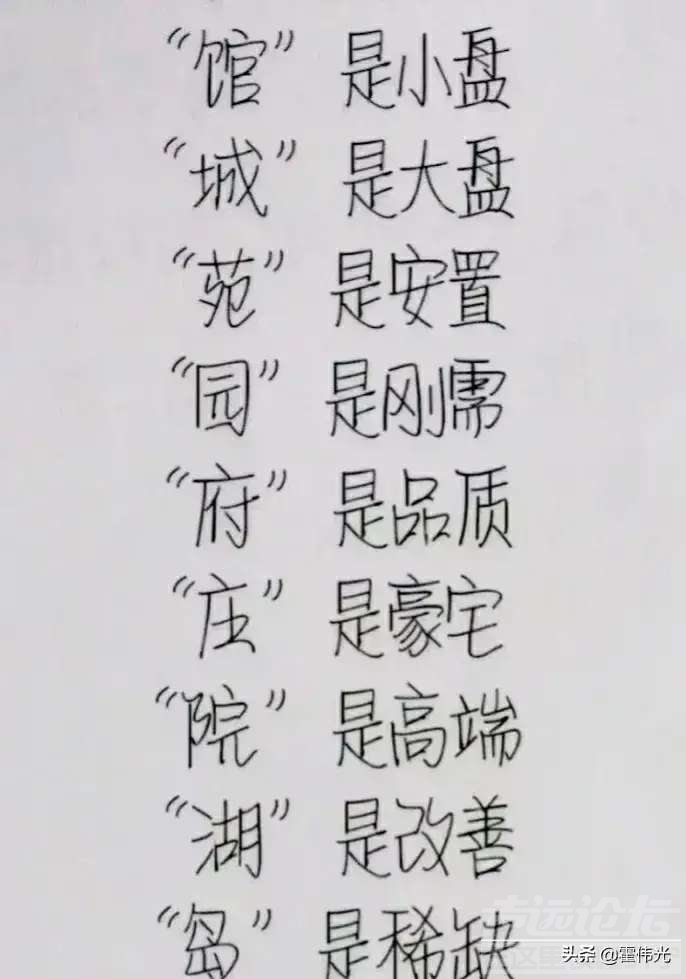 “馆” 是小盘
“城” 是大盘
“苑” 是安置
“园” 是刚需
“府” 是品质
“庄” 是豪宅
“院” 是高端
“湖” 是改善
“岛” 是稀缺
头条 @霍伟光